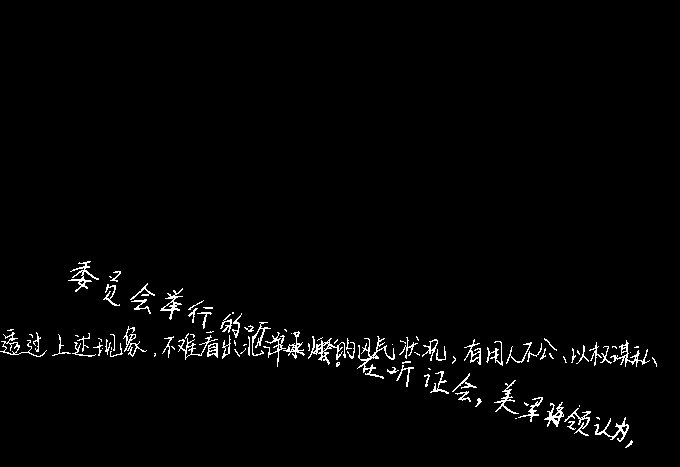 委员会举行的听 在听证会,美军将领认为,
透过上述现象,不难看出 的风气状况,有用人不公、以权谋私、